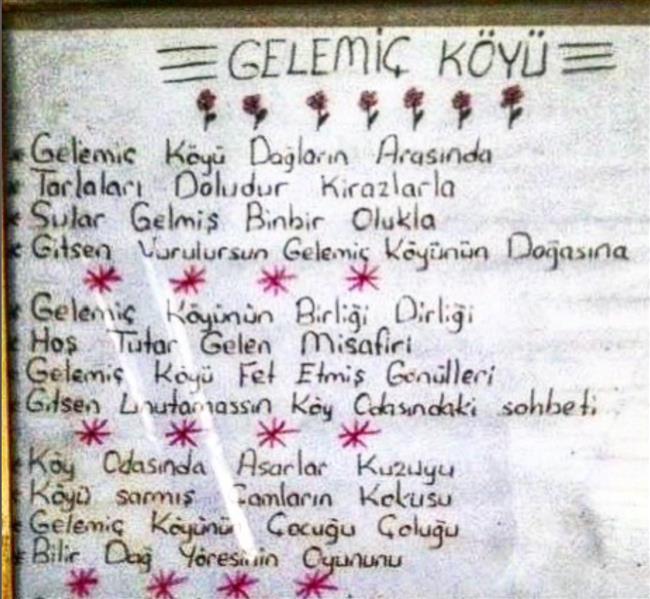 GELEMİÇ KÖYÜ
Gelemiç Köyü Dağların Arasında
Tarlaları Doludur Kirazlarla
Sular Gelmiş Binbir Olukla
Gitsen Vurulursun Gelemiç Köyünün Doğasına
Gelemiç Köyünün Birliği Dirliği
Hoş Tutar Gelen Misafiri
Gelemiç Köyü Fet Etmiş Gönülleri
Gitsen Unutamassın Köy Odasındaki sohbeti
Köy Odasında Asarlar Kuzuyu
Köyü sarmış Çamların Kokusu
Gelemiç Köyünün Çocuğu Çoluğu
Bilir Dağ Yöresinin Oyununu